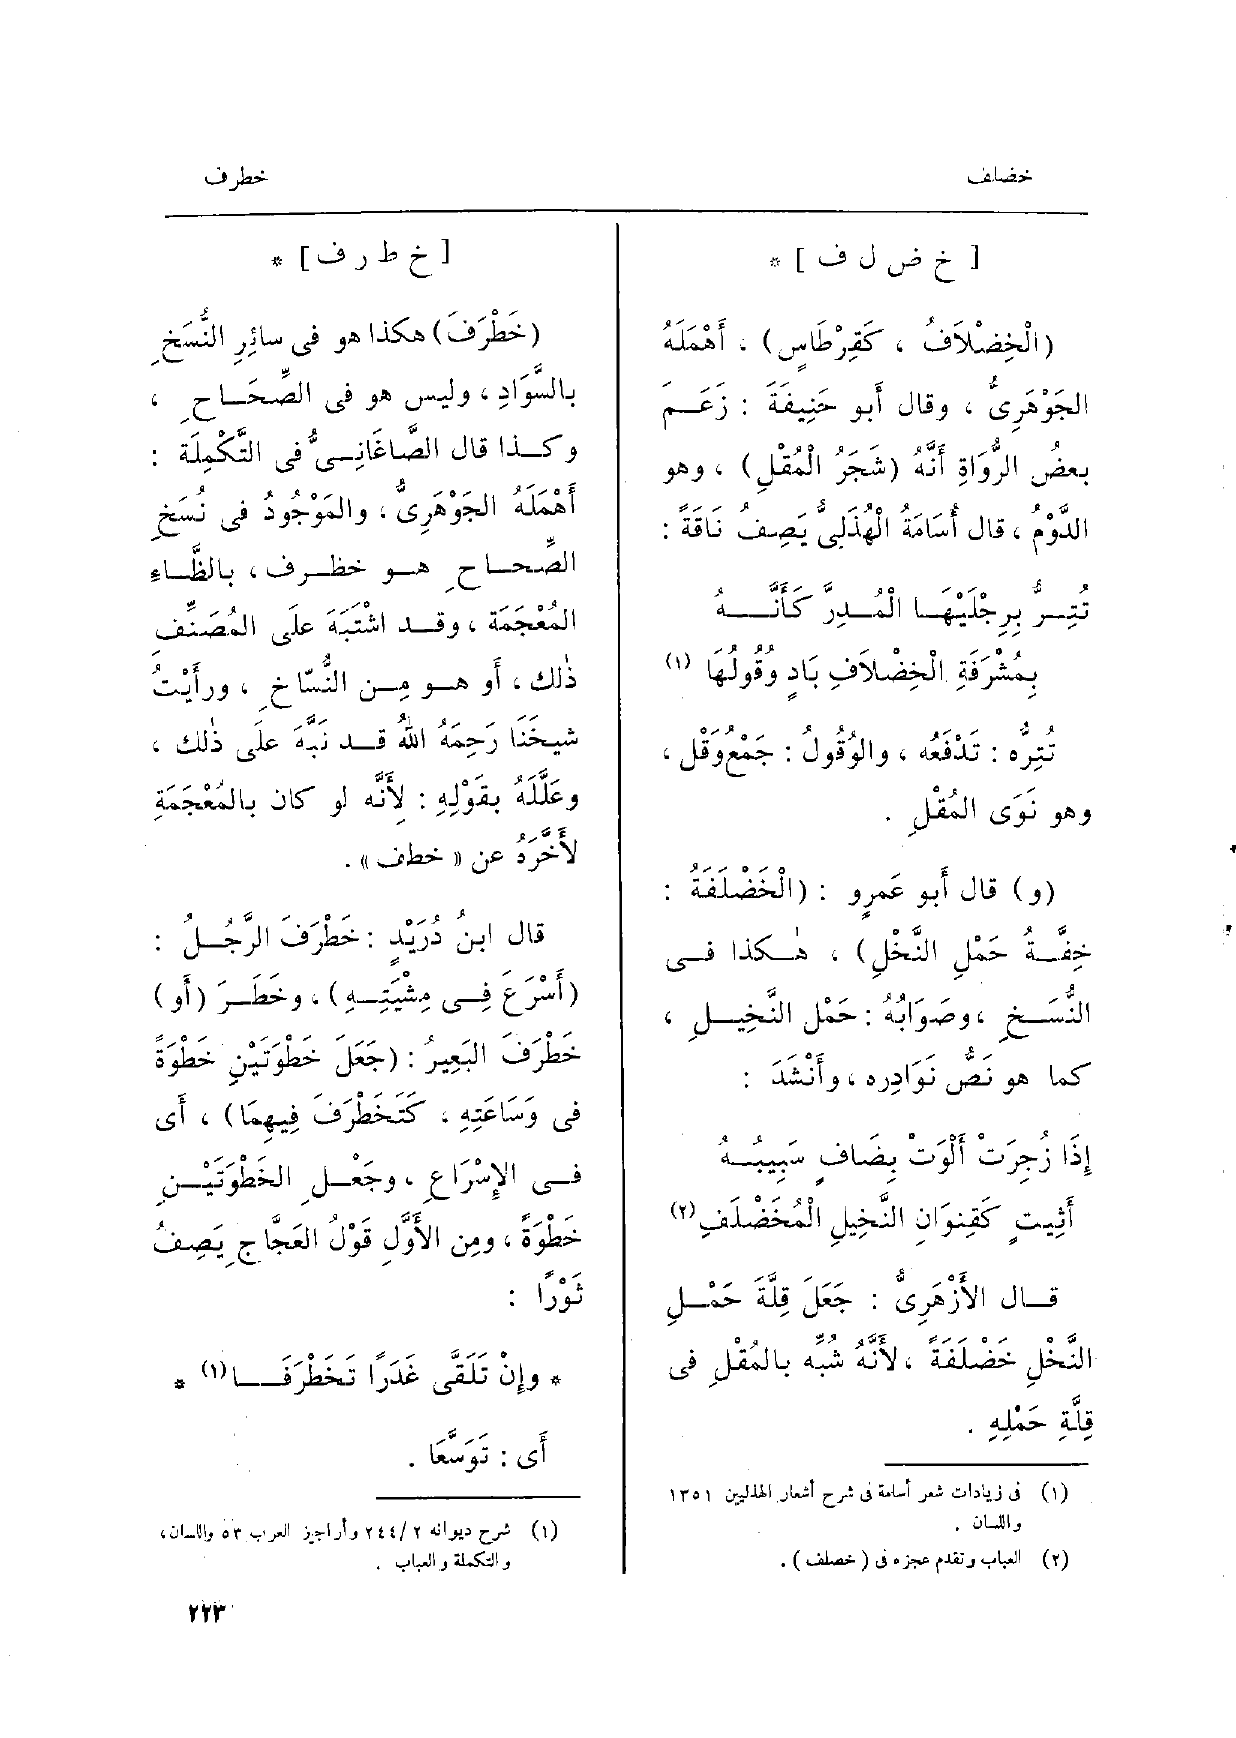 خضلف
خطرف
[ خ ض ل ف ] *
(الْخِضْلَافُ ، كَقِرْطَاسٍ) ، أَهْمَلَهُ
الجَوْهَرِىُّ ، وقال أَبو حَنِيفَةَ : زَعَمَ
بعضُ الرُّوَاةِ أَنَّهُ (شَجَرُ الْمُقْلِ) ، وهو
الدَّوْمُ ، قال أُسَامَةُ الْهُذَلِىُّ يَصِفُ نَاقَةً :
تُتِرُّ بِرِجْلَيْهَا الْمُدِرَّ كَأَنَّهُ
بِمُشْرَفَةِ الْخِضْلَافِ بَادٍ وُقُولُهَا (١)
تُتِرُّه : تَدْفَعُه ، والوُقُولُ : جَمْعُ وَقْلٍ ،
وهو نَوَى المُقْلِ .
(و) قال أَبو عَمرٍو : (الْخَضْلَفَةُ :
خِفَّةُ حَمْلِ النَّخْلِ) ، هٰكذا فى
النُّسَخِ ، وصَوَابُهُ : حَمْل النَّخِيلِ ،
كما هو نَصُّ نَوَادِره ، وأَنْشَدَ :
إِذَا زُجِرَتْ أَلْوَتْ بِضَافٍ سَبِيبُهُ
أَثِيثٍ كَقِنْوَانِ النَّخِيلِ الْمُخَضْلَفِ (٢)
قال الأَزْهَرِىُّ : جَعَلَ قِلَّةَ حَمْلِ
النَّخْلِ خَضْلَفَةً ، لأَنَّهُ شُبِّه بالمُقْلِ فى
قِلَّةِ حَمْلِهِ .
(١) فى زيادات شعر أسامة فى شرح أشعار الهذليين ١٣٥١
واللسان .
(٢) العباب وتقدم عجزه فى ( خصلف ) .
[ خ ط ر ف ] *
(خَطْرَفَ) هكذا هو فى سائِرِ النُّسَخِ
بالسَّوَادِ ، وليس هو فى الصِّحَاحِ ،
وكذا قال الصَّاغَانِىُّ فى التَّكْمِلَة :
أَهْمَلَهُ الجَوْهَرِىُّ ، والمَوْجُودُ فى نُسَخِ
الصِّحاحِ هو خظرف ، بالظَّاءِ
المُعْجَمَة ، وقد اشْتَبَهَ علَى المُصَنِّفِ
ذٰلك ، أَو هو مِن النُّسّاخِ ، ورأَيْتُ
شيخَنَا رَحِمَهُ اللهُ قد نَبَّهَ علَى ذٰلك ،
وعلَّلَهُ بقَوْلِهِ : لِأَنَّه لو كان بالمُعْجَمَةِ
لأَخَّرَهُ عن « خطف » .
قال ابنُ دُرَيْدٍ : خَطْرَفَ الرَّجُلُ :
(أَسْرَعَ فِى مِشْيَتِهِ) ، وخَطَرَ (أَو)
خَطْرَفَ البَعِيرُ : (جَعَلَ خَطْوَتَيْنِ خَطْوَةً
فى وَسَاعَتِهِ ، كَتَخَطْرَفَ فِيهِمَا) ، أَى
فى الإِسْرَاعِ ، وجَعْلِ الخَطْوَتَيْنِ
خَطْوَةً ، ومِن الأَوَّلِ قَوْلُ العَجَّاجِ يَصِفُ
ثَوْرًا :
* وإِنْ تَلَقَّى غَدَرًا تَخَطْرَفَا (١) *
أَى : تَوَسَّعَا .
(١) شرح ديوانه ٢ / ٢٤٤ وأراجيز العرب ٥٣ واللسان ،
والتكملة والعباب .
٢٢٣